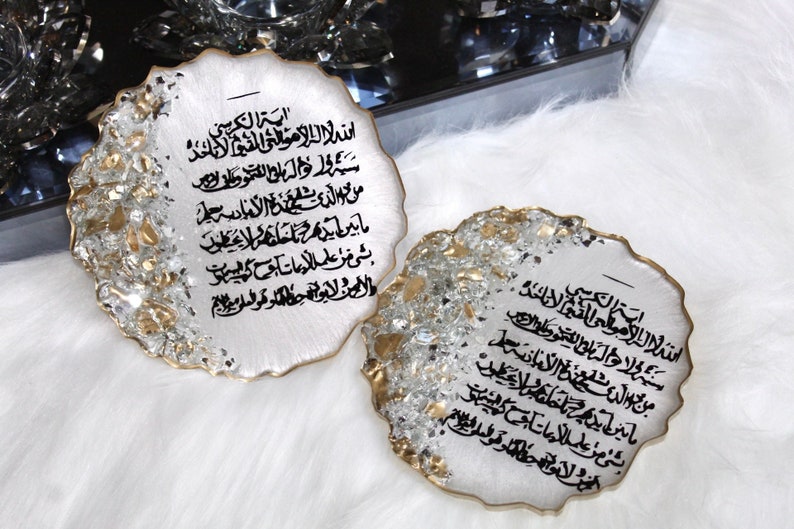 اية الكرسي
الله لا اله الا هو الحي القيوم لا تأخذه
سنة ولا نوم له ما في السموات وما في الارض
من ذا الذي يشفع عنده الا باذنه يعلم
ما بين ايديهم وما خلفهم ولا يحيطون
بشيء من علمه الا بما شاء وسع كرسيه السموات
والارض ولا يؤده حفظهما وهو العلي العظيم
اية الكرسي
الله لا اله الا هو الحي القيوم لا تأخذه
سنة ولا نوم له ما في السموات وما في الارض
من ذا الذي يشفع عنده الا باذنه يعلم
ما بين ايديهم وما خلفهم ولا يحيطون
بشيء من علمه الا بما شاء وسع كرسيه السموات
والارض ولا يؤده حفظهما وهو العلي العظيم